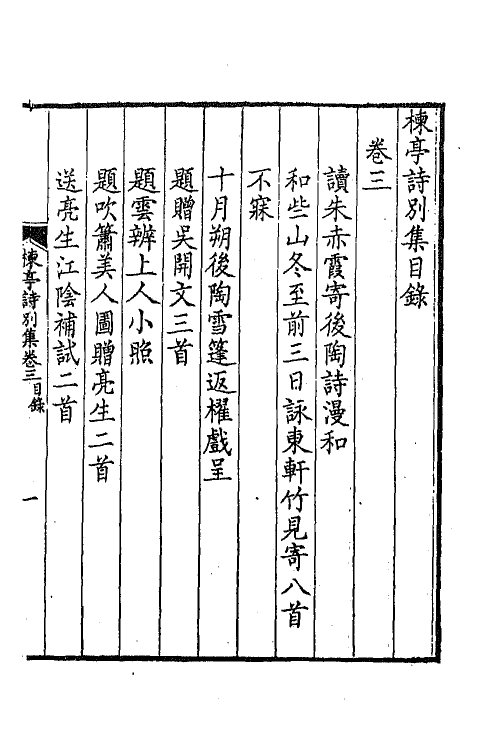 楝亭詩別集目錄
卷三
讀朱赤霞寄後陶詩漫和
和些山冬至前三日詠東軒竹見寄八首
不寐
十月朔後陶雪篷返櫂戲呈
題贈吳開文三首
題雲辨上人小照
題吹簫美人圖贈亮生二首
送亮生江陰補試二首
楝亭詩別集卷三目錄 一